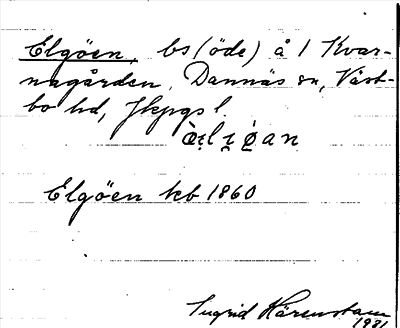 Elgöen, bs (öde) å 1 Kvar-
nagården, Dannäs sn, Väst-
bo hd, Jkpgs l.
Elgöen kb 1860
Ingrid Härenstam
1931